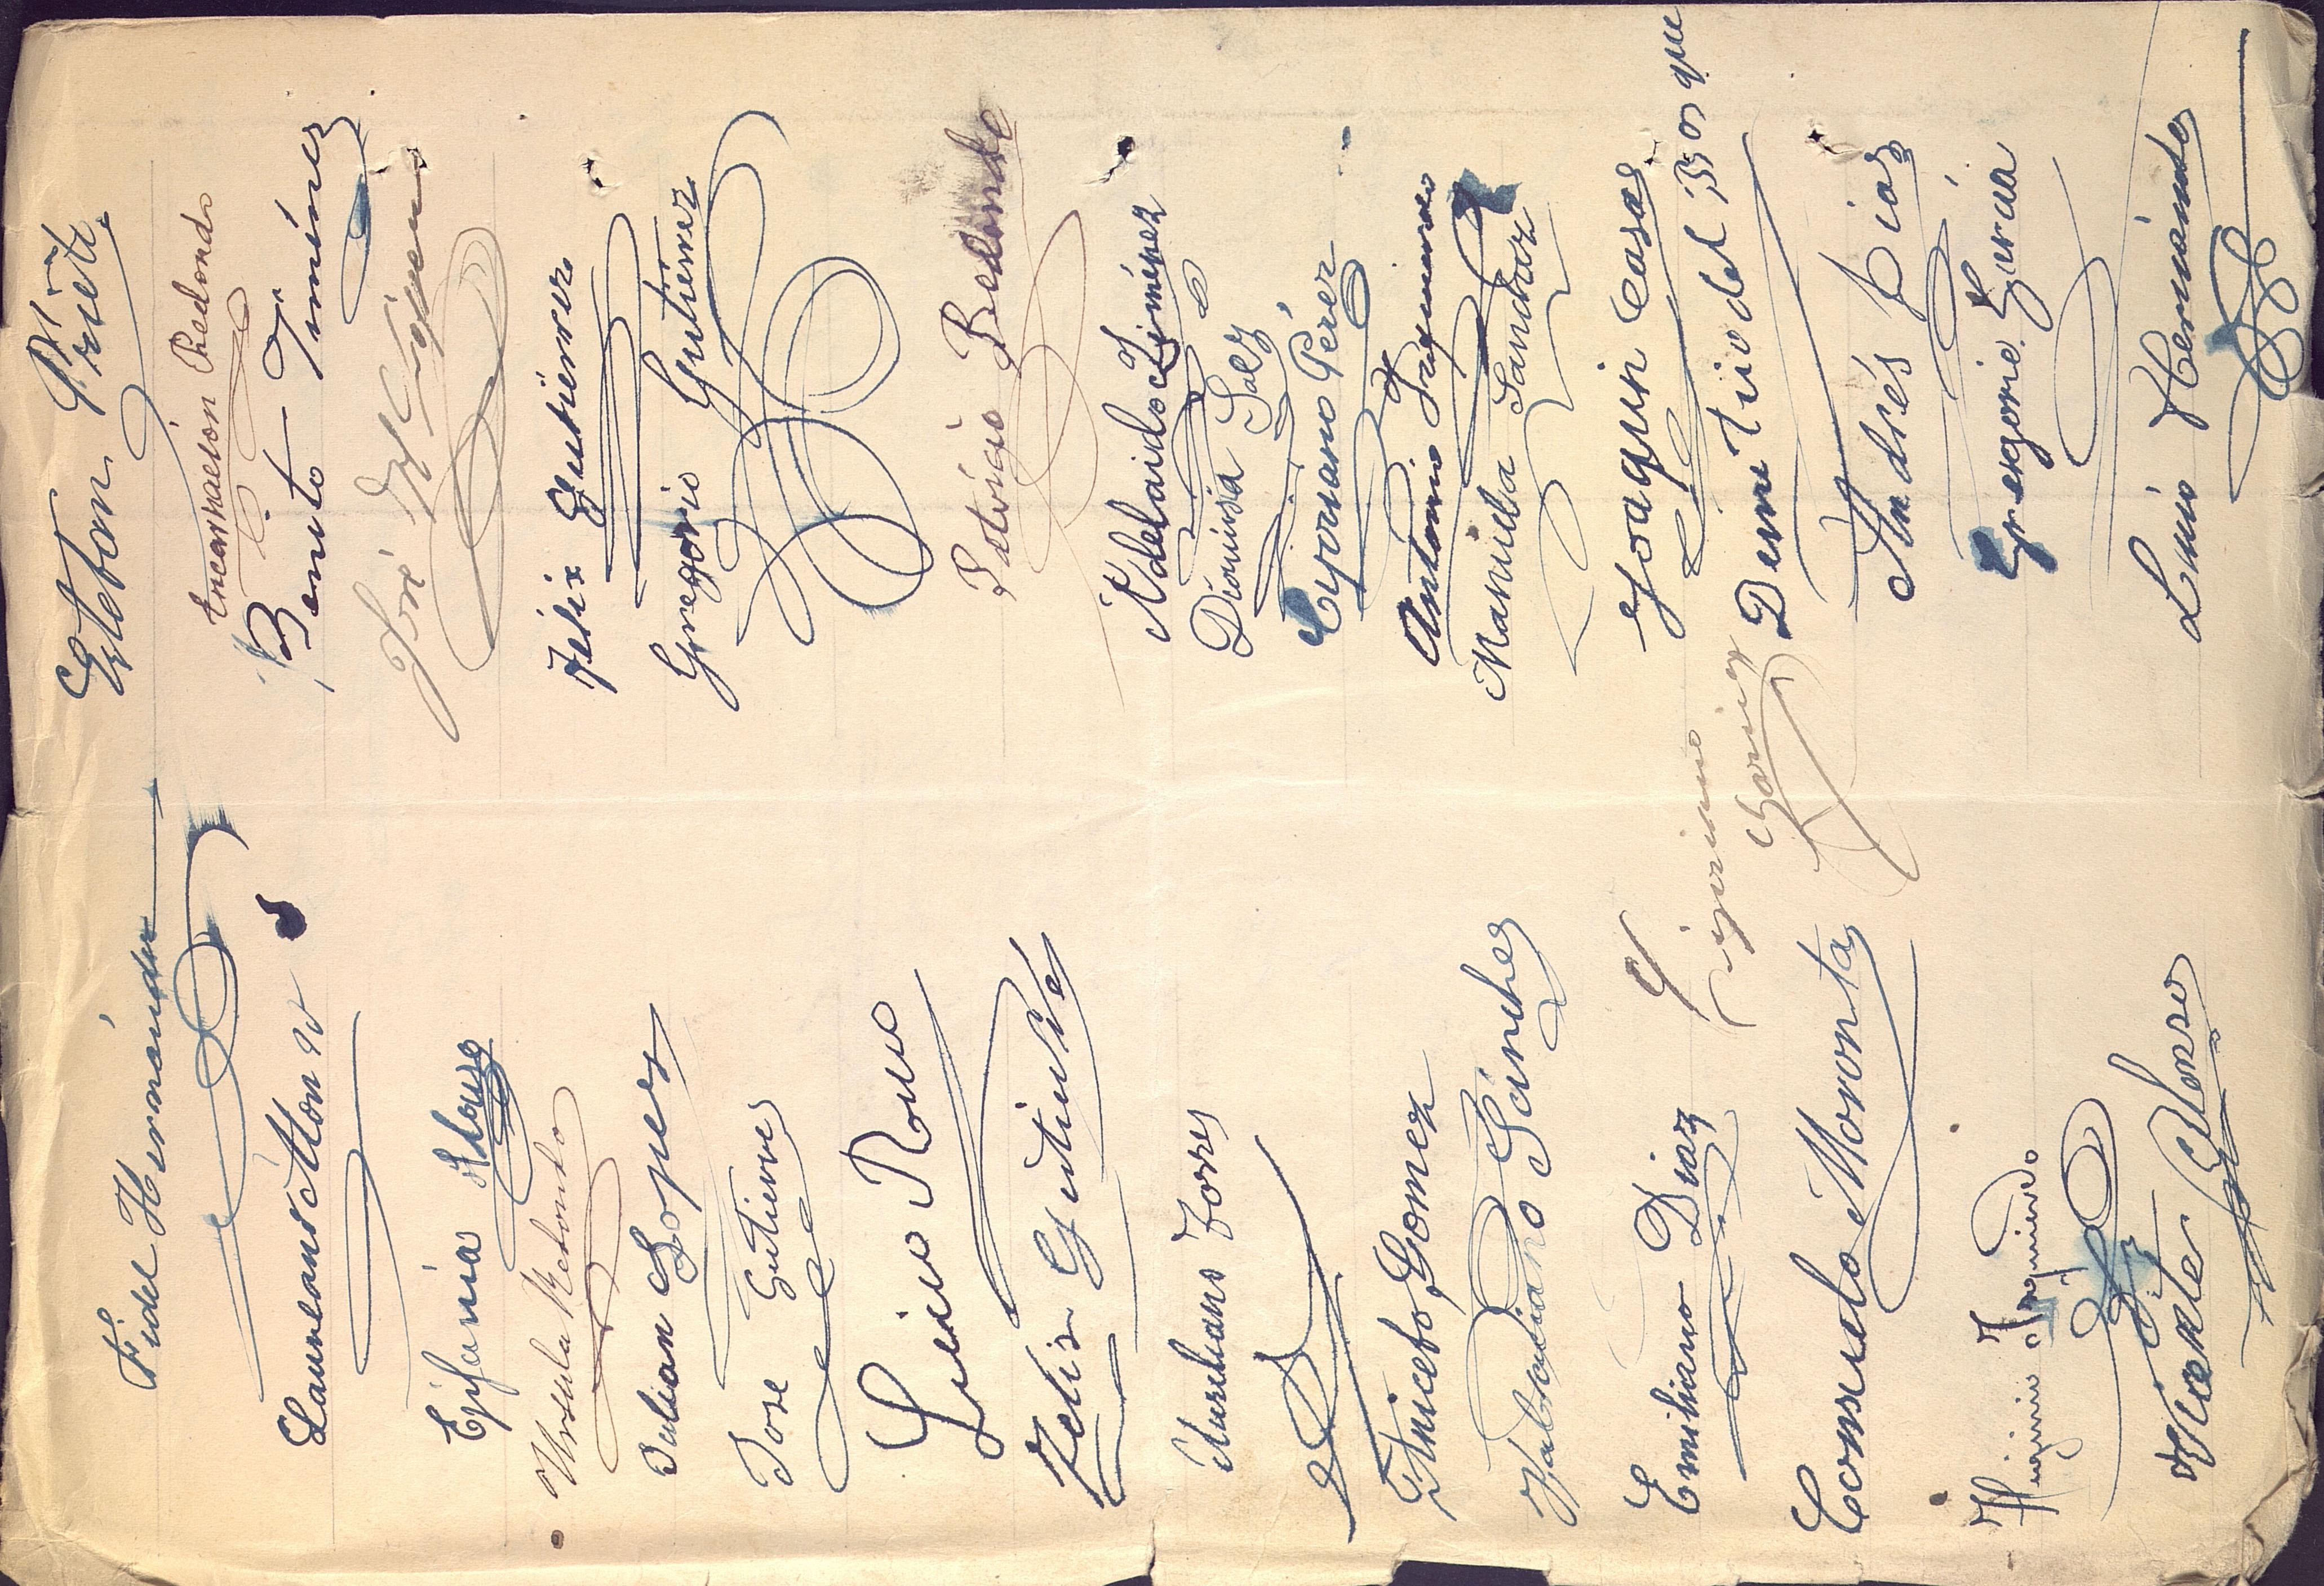 Fidel Hernández
Laureano
Epifania Alonso
Ursula Redondo
Julian Lopez
Jose Gutierrez
Lucio Romo
Felix Gutierrez
Aureliano Torres
Aniceto Gomez
Sánchez
Emiliano Diaz
Consuelo Moronta
Higinio Izquierdo
Alonso
Esteban Prieto
Encarnacion Redondo
Benito Jiménez
José
Félix Gutiérrez
Gregorio Gutiérrez
Patricio Redondo
Adelaido Jiménez
Dionisia Salz
Cypriano Pérez
Antonio Izquierdo
Manuela Sanchez
Joaquin Casas
Demetrio del Bosque
Cipriano
Andrés Dias
Gregorio García
Lucio Hernández